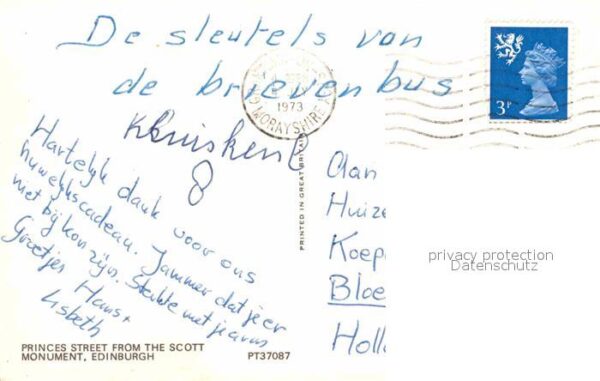 De sleutels van
de brievenbus
1973
MORAYSHIRE
3P
8
Hartelijk dank voor ons
huwelijkscadeau. Jammer dat je er
niet bij kon zijn. Sterkte met je arm
Groetjes Hans +
Lisbeth
PRINTED IN GREAT BRITAIN
Aan
Huize
Koep
Bloe
Holla
privacy protection
Datenschutz
PRINCES STREET FROM THE SCOTT
MONUMENT, EDINBURGH
PT37087